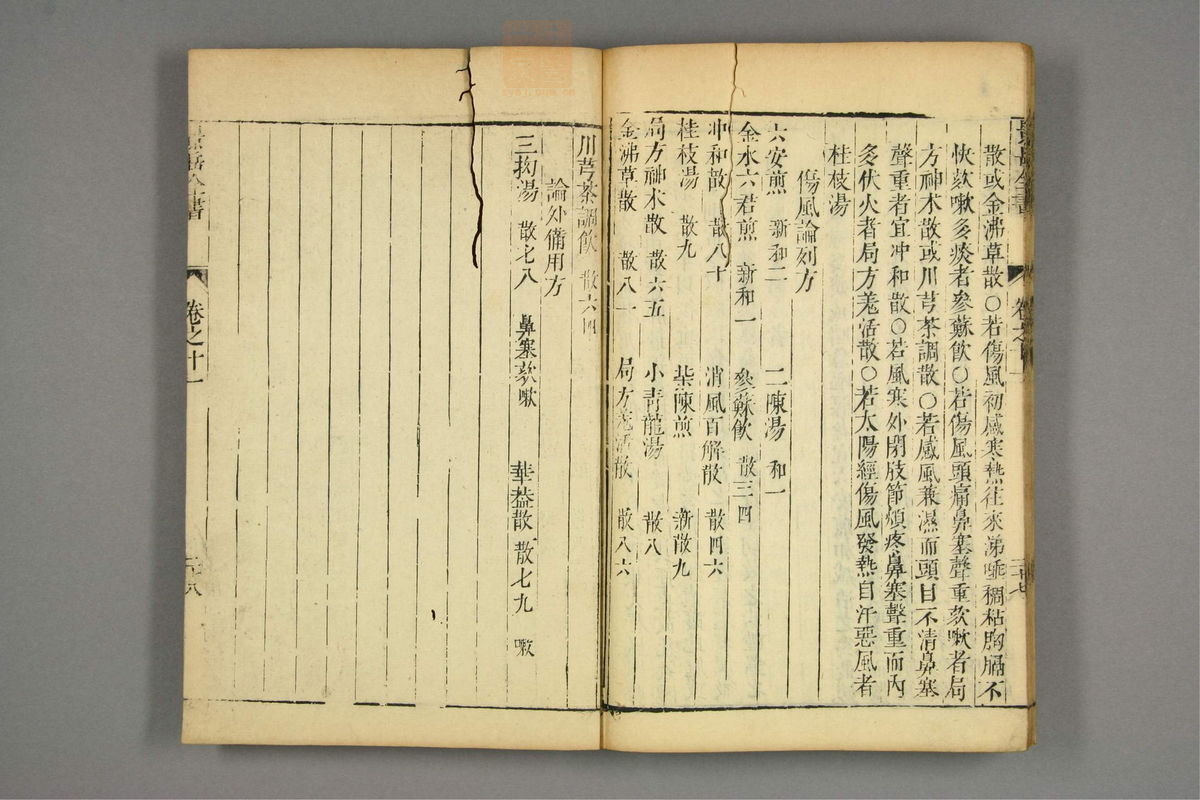 景岳全書 卷之十一
散或金沸草散○若傷風初感寒熱往來涕唾稠粘胸膈不
快欬嗽多痰者參蘇飲○若傷風頭痛鼻塞聲重欬嗽者局
方神术散或川芎茶調散○若感風兼濕而頭目不清鼻塞
聲重者宜冲和散○若風寒外閉肢節煩疼鼻塞聲重而內
多伏火者局方羌活散○若太陽經傷風發熱自汗惡風者
桂枝湯
傷風論列方
六安煎 新和二 二陳湯 和一
金水六君煎 新和一 參蘇飲 散三四
冲和散 散八十 消風百解散 散四六
桂枝湯 散九 柴陳煎 新散九
局方神术散 散六五 小青龍湯 散八
金沸草散 散八一 局方羌活散 散八六
川芎茶調飲 散六四
論外備用方
三拗湯 散七八 鼻塞欬嗽 華蓋散 散七九 嗽
景岳全書 卷之十一